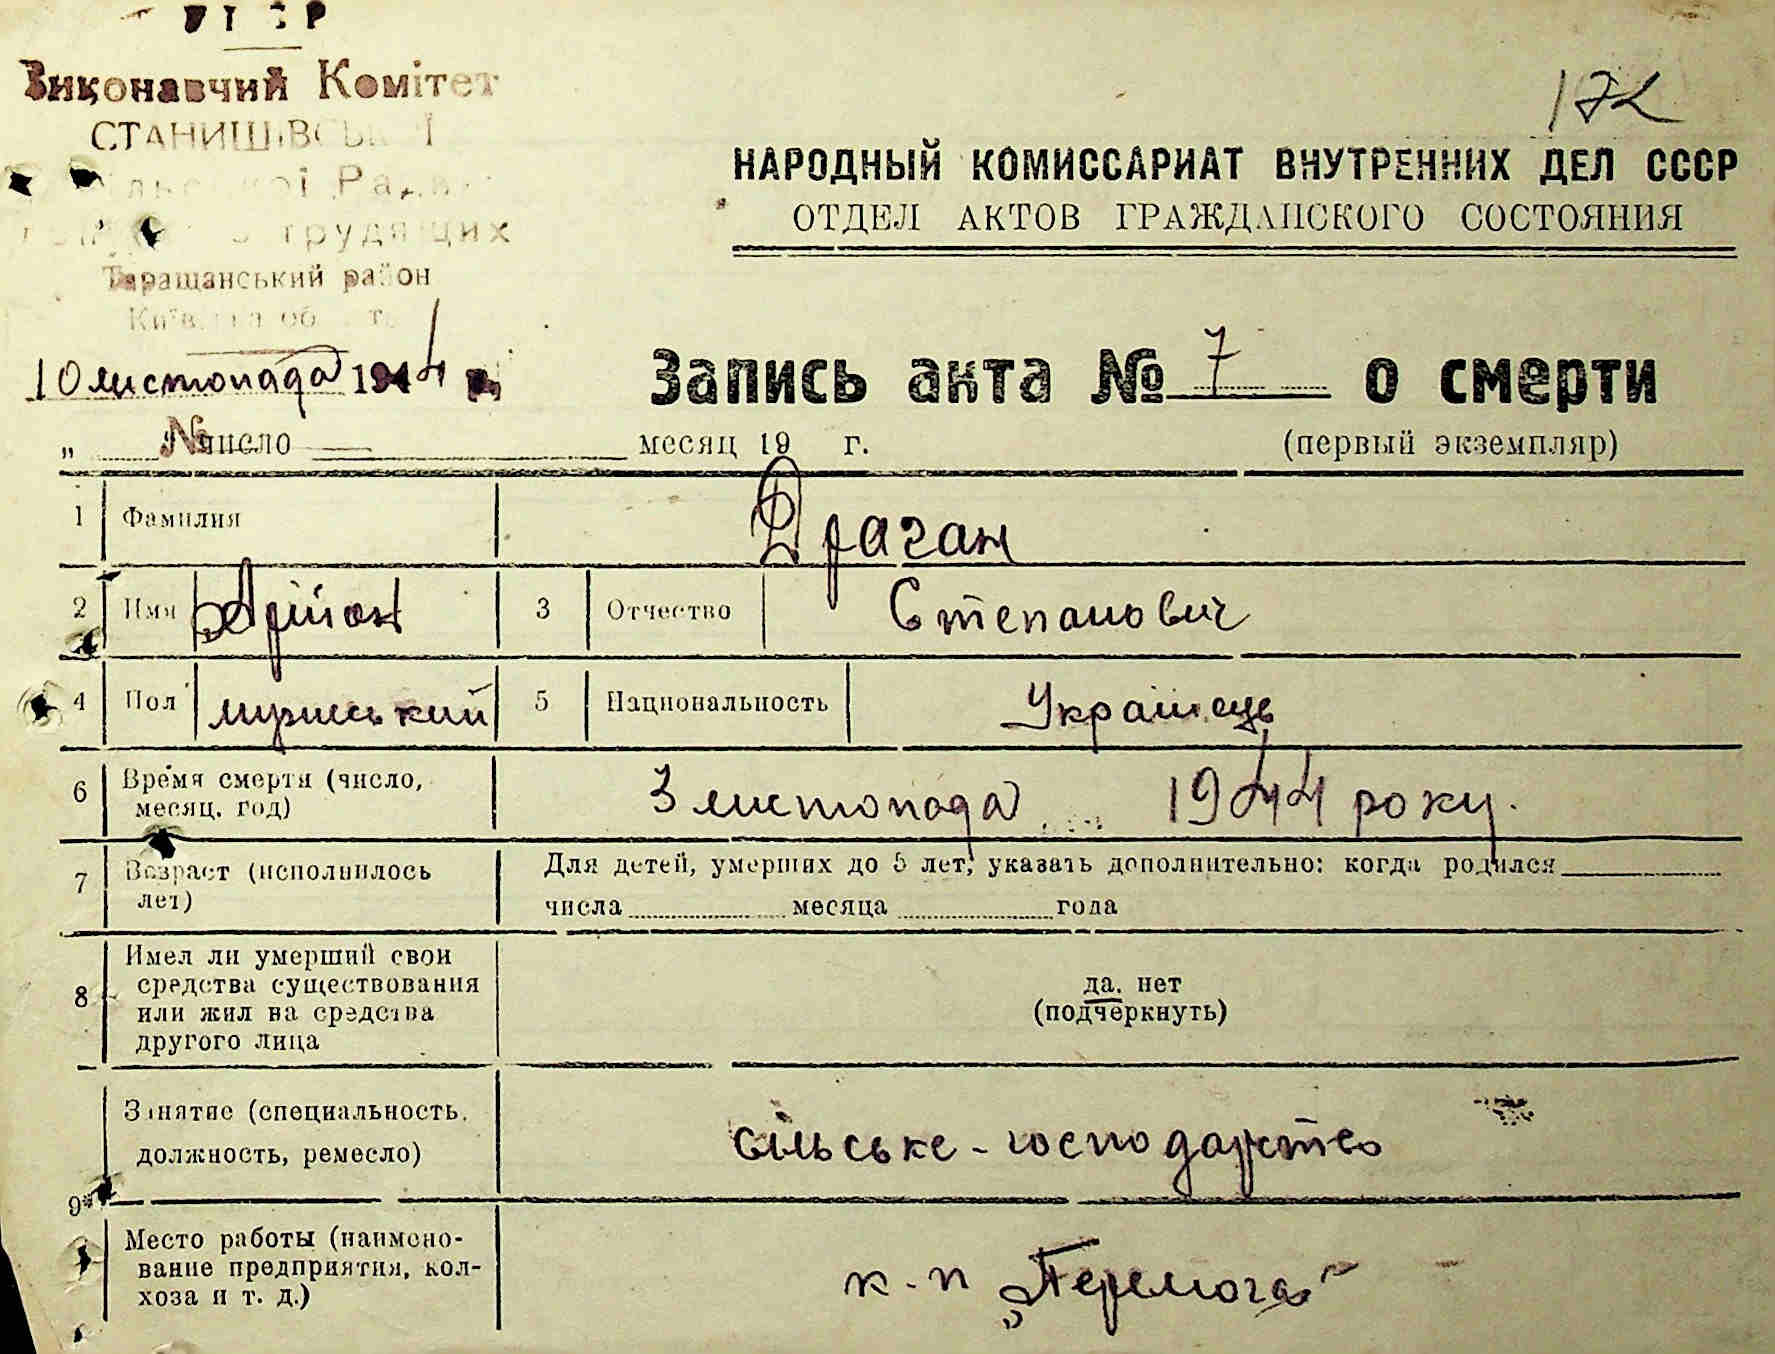 172
Виконавчий Комітет
СТАНИШІВСЬКОЇ
трудящих
Таращанський район
10 листопада 1944 р.
НАРОДНЫЙ КОМИССАРИАТ ВНУТРЕННИХ ДЕЛ СССР
ОТДЕЛ АКТОВ ГРАЖДАНСКОГО СОСТОЯНИЯ
Запись акта № 7 о смерти
„ № число месяц 19 г. (первый экземпляр)
1 Фамилия Драган
2 Имя 3 Отчество Степанович
4 Пол мужський 5 Национальность Українець
6 Время смерти (число, месяц, год) 3 листопада 1944 року.
7 Возраст (исполнилось лет) Для детей, умерших до 5 лет, указать дополнительно: когда родился
числа месяца года
8 Имел ли умерший свои
средства существования
или жил на средства
другого лица
да, нет
(подчеркнуть)
9* Занятие (специальность,
должность, ремесло)
сільське-господарство
Место работы (наимено-
вание предприятия, кол-
хоза и т. д.)
к-п „Перемога"